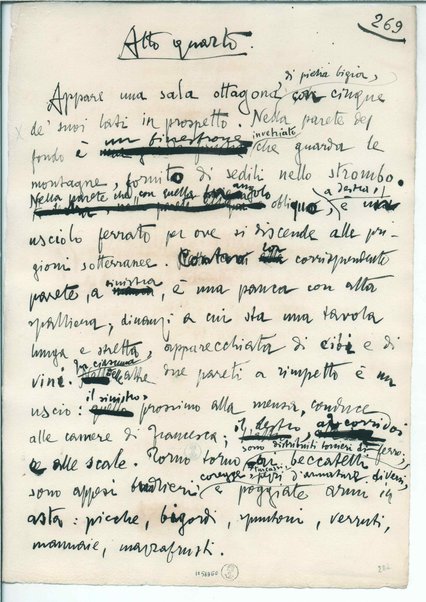 269
Atto quarto.
Appare una sala ottagona, di pietra bigia, con cinque
de' suoi lati in prospetto. Nella parete del
fondo è un finestrone invetriate che guarda le
montagne, fornito di sedili nello strombo.
Nella parete che con quella fa angolo
obliquo, a destra, è un
usciolo ferrato per ove si discende alle pri-
gioni sotterranee. Contro alla corrispondente
parete, a sinistra, è una panca con alta
spalliera, dinanzi a cui sta una tavola
lunga e stretta, apparecchiata di cibi e di
vini. In ciascuna delle altre due pareti a rimpetto è un
uscio: il sinistro prossimo alla mensa, conduce
alle camere di Francesca; il destro ai corridoi
e alle scale. Torno torno sono distribuiti torcieri di ferro,
ai beccatelli
sono appesi budrieri, coregge, turcassi, pezzi d'armature diversi,
e poggiate armi in
asta: picche, bigordi, spuntoni, verruti,
mannaie, mazzafrusti.